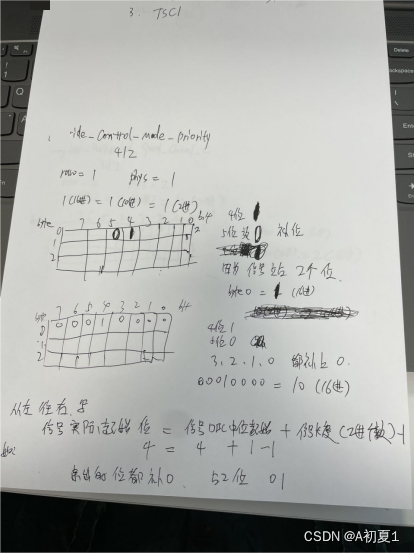 3. TSC1
-ide_control_mode_priority
4|2
raw = 1 phys = 1
1(16进) = 1(10进) = 1(2进)
byte 7 6 5 4 3 2 1 0 bit
0 0 1
1
2
4位 1
5位 0 补位
因为 信号占 2个位
byte 0 = 1 (16进)
7 6 5 4 3 2 1 0 bit
0 0 0 0 1 0 0 0 0
1
2
4位 1
位 0
3、2、1、0 都补上 0
00010000 = 10 (16进)
从左往右 写
信号实际起始位 = 信号 中位起始 + 信号长度(2进制)-1
4 = 4 + 1 -1
的位都补0 5 2位 01
CSDN @A初夏1